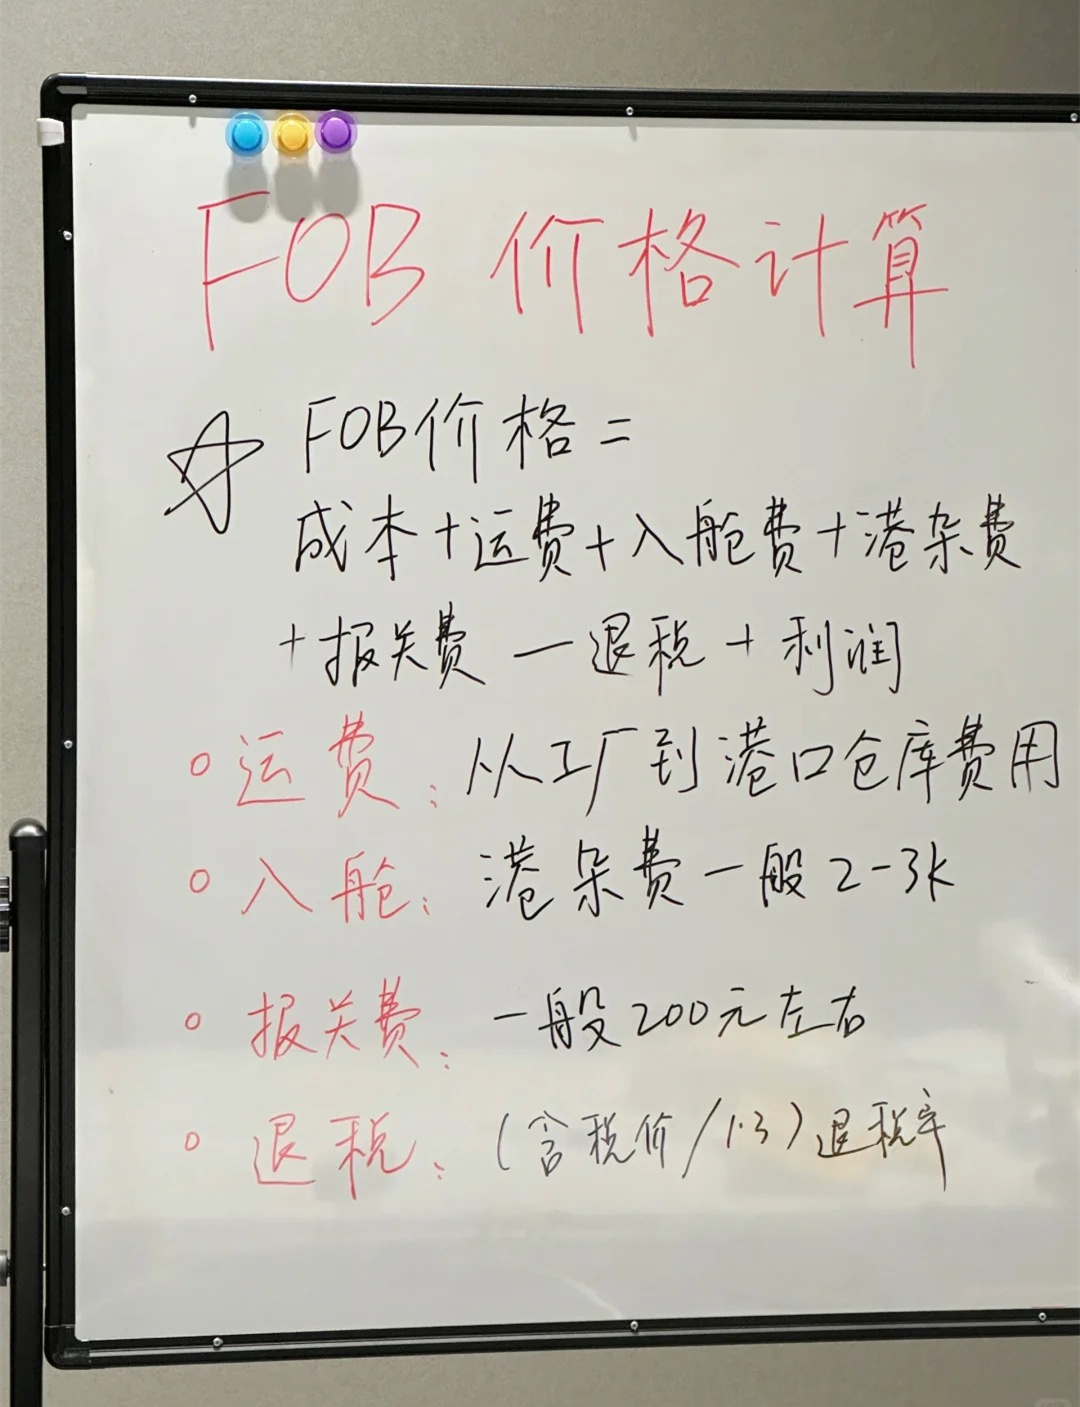 FOB 价格计算
FOB价格=
成本+运费+入舱费+港杂费
+报关费-退税+利润
运费:从工厂到港口仓库费用
入舱:港杂费一般2-3k
报关费:一般200元左右
退税:(含税价/1.3)退税率